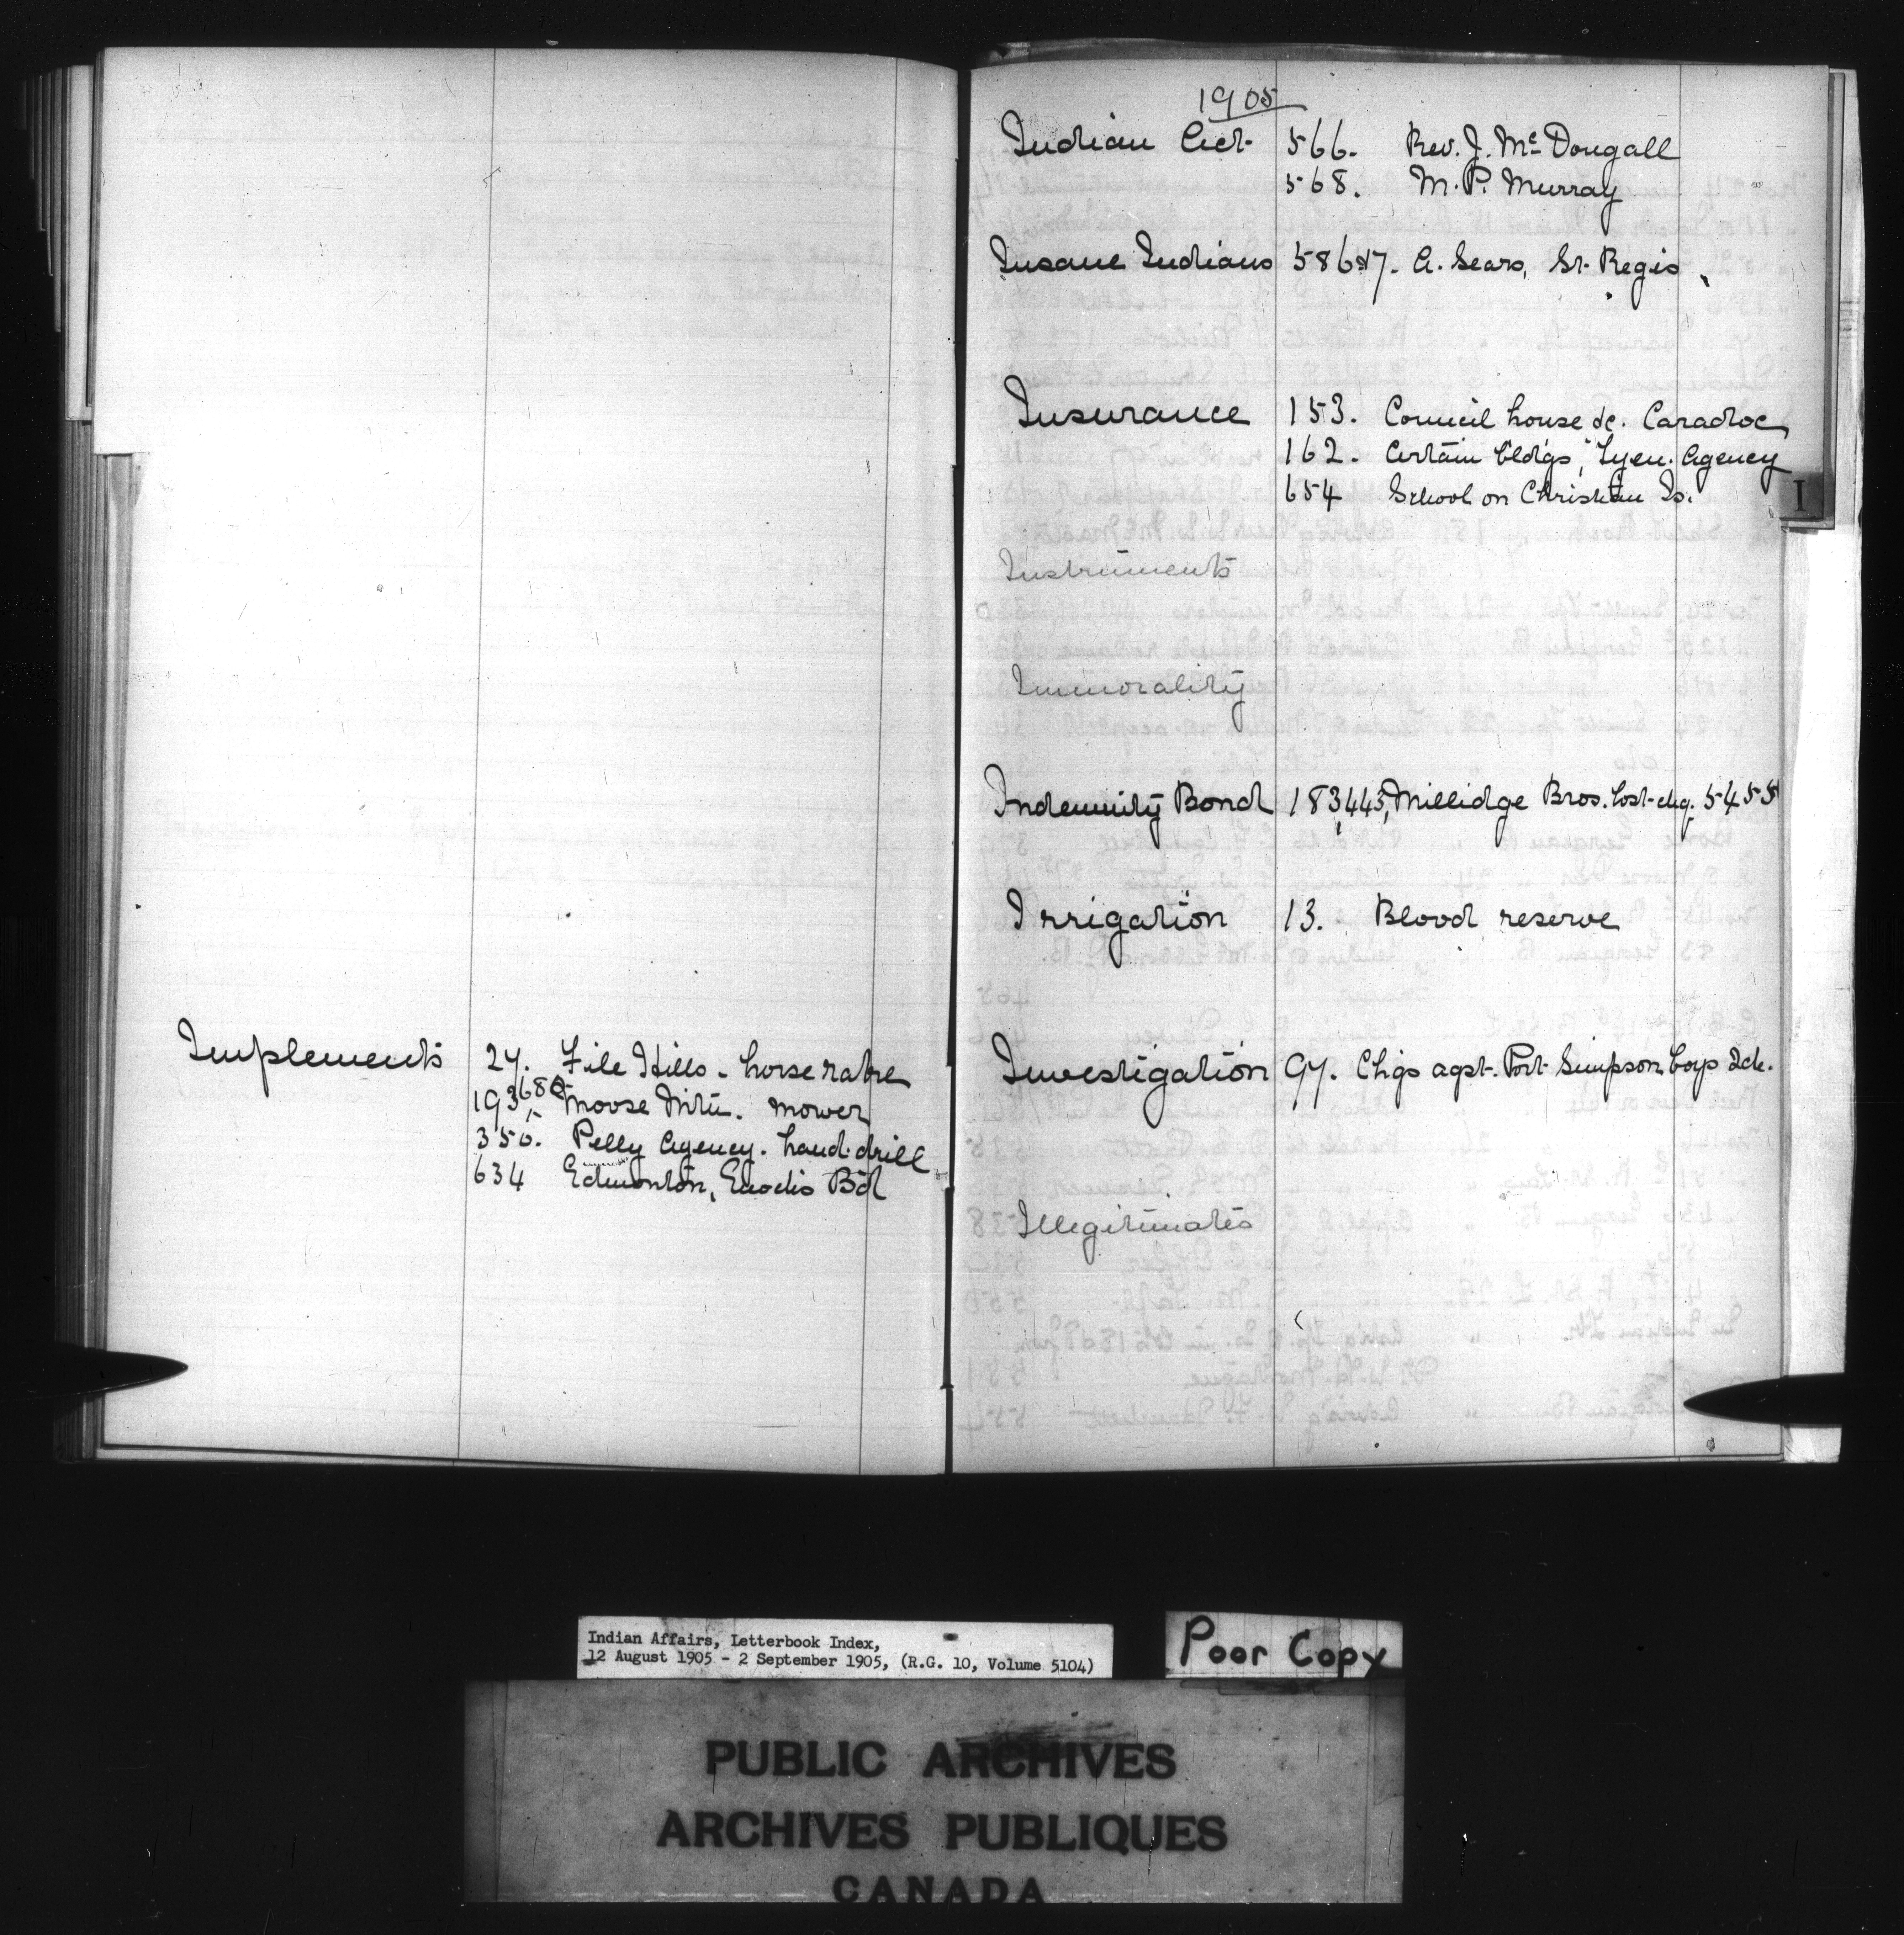 Implements 27. File Hills - horse rake
193,680 Moose Mtn. mower
350. Pelly Agency. hand drill
634 Edmonton, Enochs Bd
1905
Indian Act 566. Rev. J. McDougall
568. M. P. Murray
Insane Indians 586&7. A. Sears, St. Regis
Insurance 153. Council house &c. Caradoc
162. Certain bldgs, Tyen. Agency
654 School on Christian Is.
I
Instruments
Immorality
Indemnity Bond 183,443, Millidge Bros. lost chq. 5455
Irrigation 13. Blood reserve
Investigation 97. Chgs agst. Port Simpson boys Sch.
Illegitimates
Indian Affairs, Letterbook Index,
12 August 1905 - 2 September 1905, (R.G. 10, Volume 5104)
Poor Copy
PUBLIC ARCHIVES
ARCHIVES PUBLIQUES
CANADA